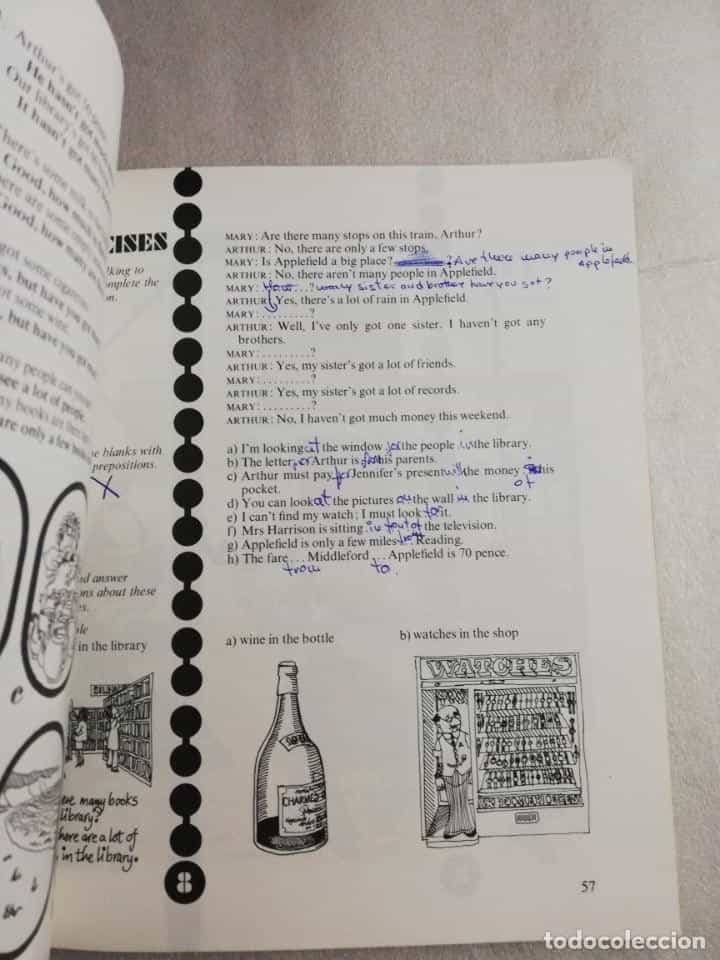 Arthur's got
He hasn't got
Our library's got
It hasn't got
There's some milk
Good, how much
There are some
Good, how many
got some
but have you got
got some wine.
, but have you got
many people can you
see a lot of people.
many books are there
are only a few books
CISES
lking to
omplete the
on.
MARY: Are there many stops on this train, Arthur?
ARTHUR: No, there are only a few stops.
MARY: Is Applefield a big place? ? Are there many people in applefield.
ARTHUR: No, there aren't many people in Applefield.
MARY: How...? many sister and brother have you got?
ARTHUR: Yes, there's a lot of rain in Applefield.
MARY: .........?
ARTHUR: Well, I've only got one sister. I haven't got any
brothers.
MARY: .........?
ARTHUR: Yes, my sister's got a lot of friends.
MARY: .........?
ARTHUR: Yes, my sister's got a lot of records.
MARY: .........?
ARTHUR: No, I haven't got much money this weekend.
e blanks with
prepositions.
X
a) I'm looking at the window for the people in the library.
b) The letter for Arthur is from his parents.
c) Arthur must pay for Jennifer's present with the money in his
pocket. of
d) You can look at the pictures on the wall in the library.
e) I can't find my watch; I must look for it.
f) Mrs Harrison is sitting in front of the television.
g) Applefield is only a few miles from Reading.
h) The fare ... Middleford ... Applefield is 70 pence.
from to.
nd answer
ons about these
es.
ple
in the library
a) wine in the bottle
b) watches in the shop
WATCHES
ere many books
library?
here are a lot of
in the library.
C
8
57
todocoleccion